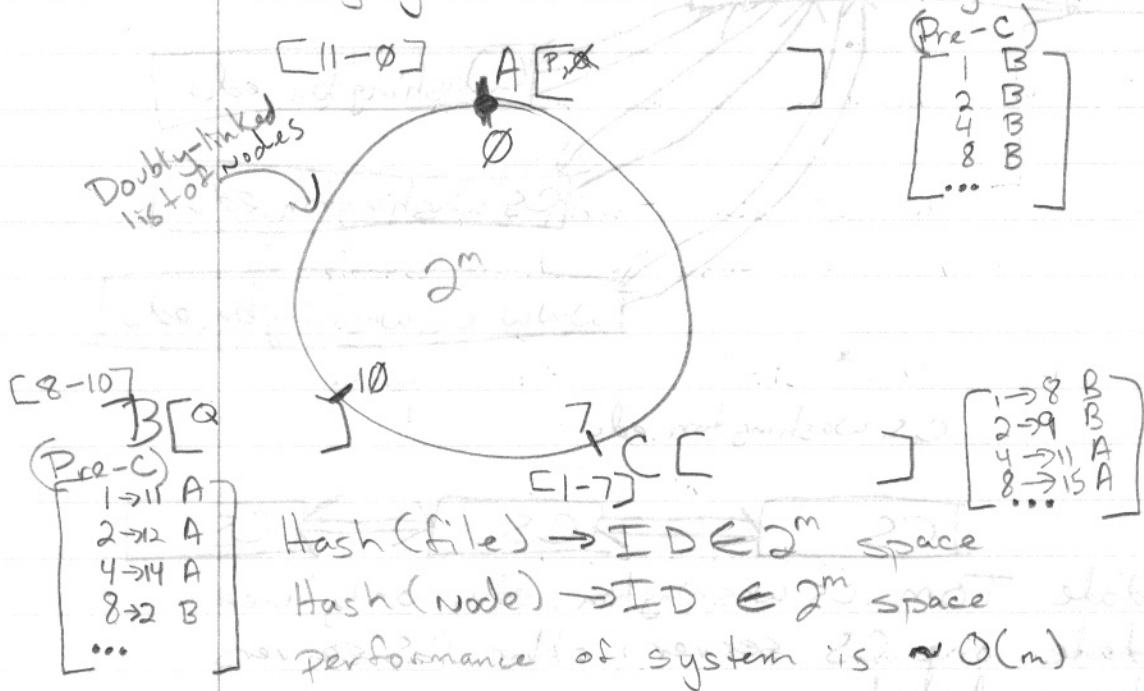 [11-Ø]
A [P, Q ]
Ø
(Pre-C)
1 B
2 B
4 B
8 B
...
Doubly-linked
list of nodes
2^m
[8-10]
B [Q ]
10
7
C [ ]
[1-7]
1→8 B
2→9 B
4→11 A
8→15 A
...
(Pre-C)
1→11 A
2→12 A
4→14 A
8→2 B
...
Hash(file) → ID ∈ 2^m space
Hash(Node) → ID ∈ 2^m space
performance of system is ~ O(m)